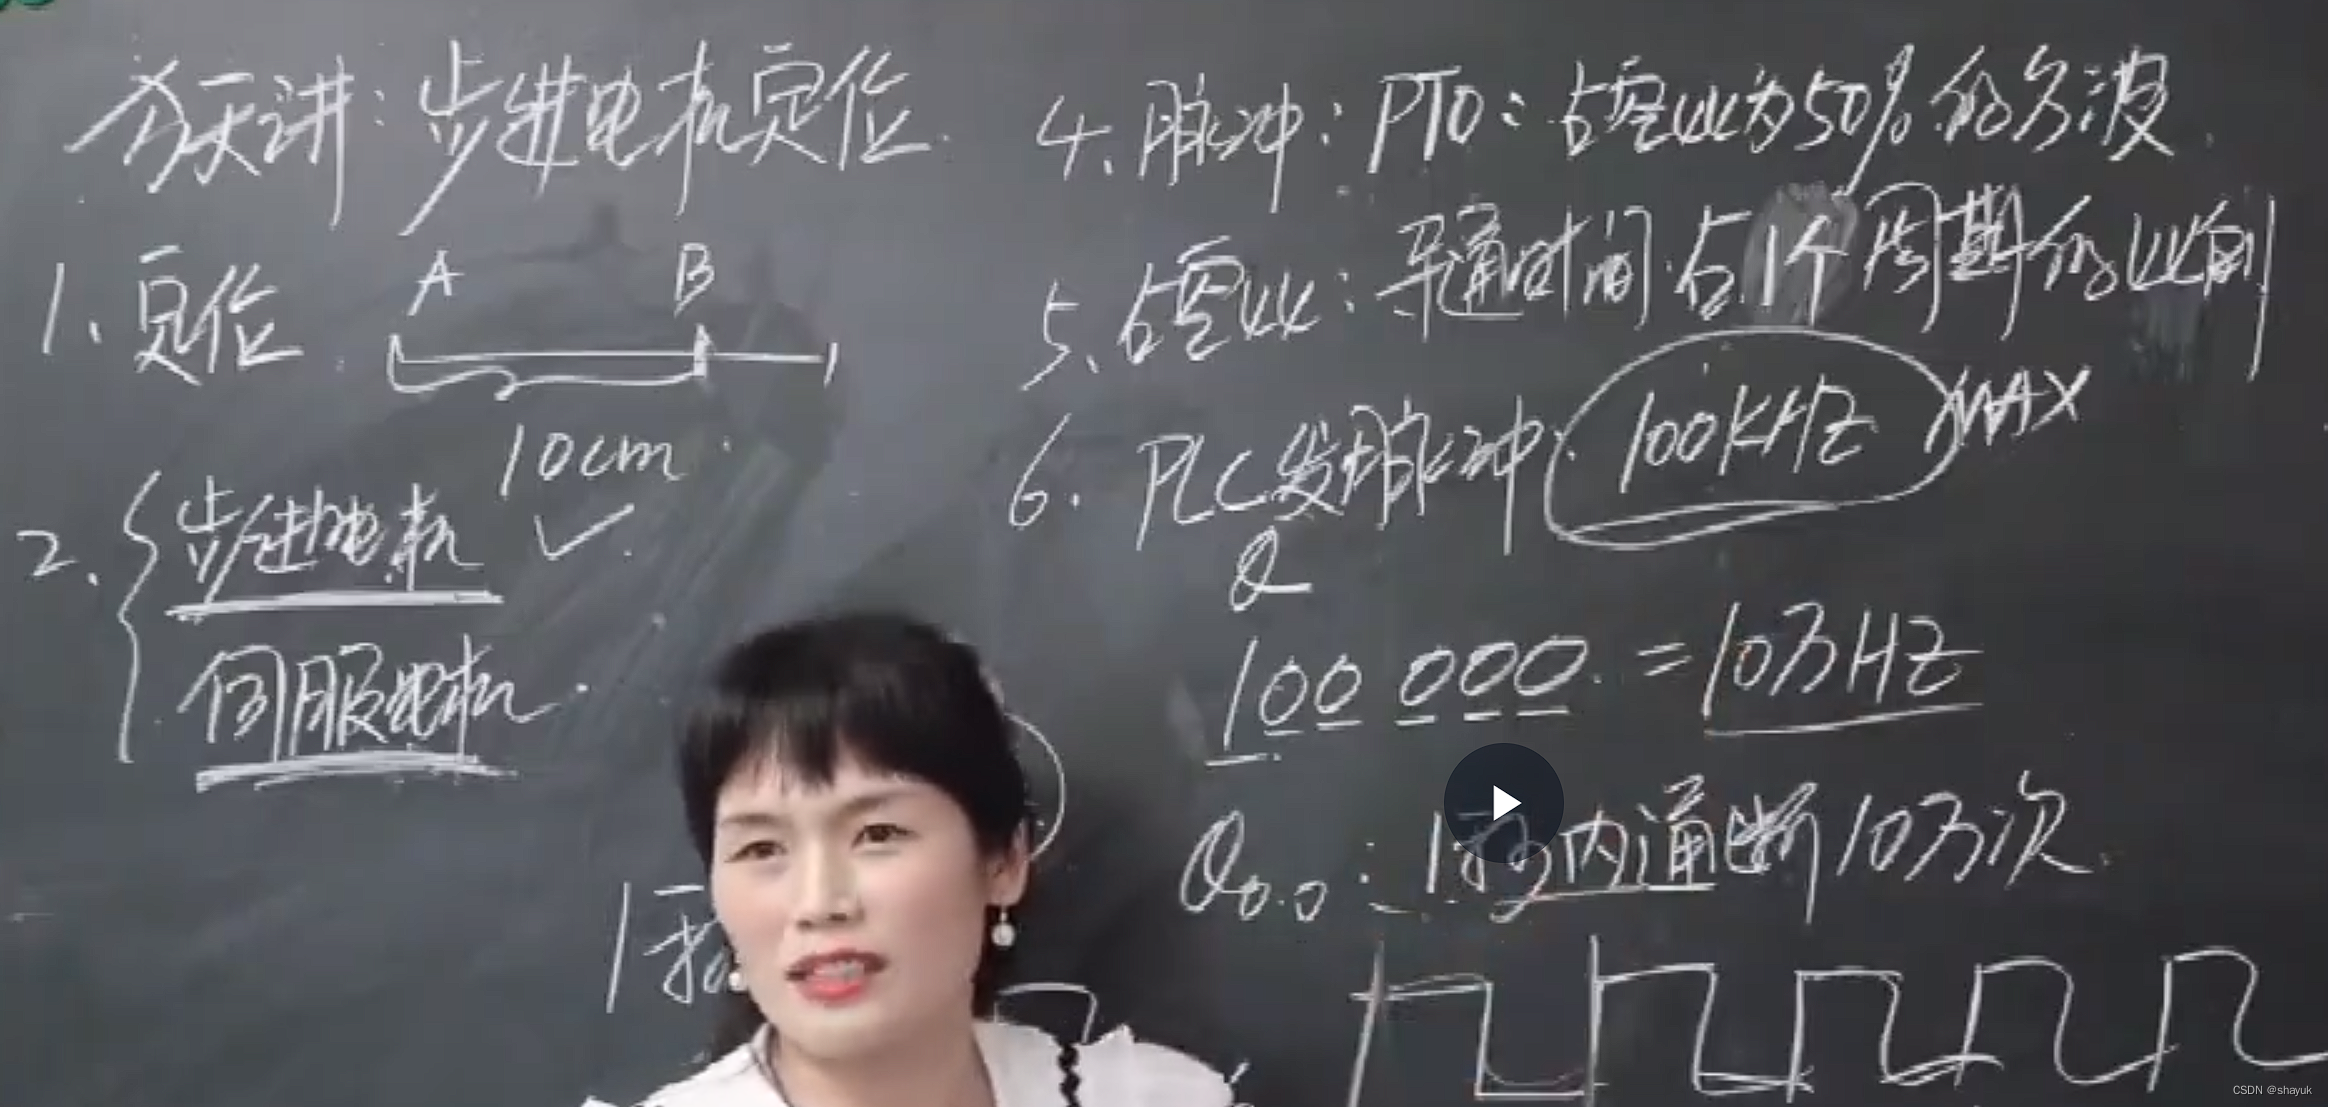 今天讲：步进电机定位
1、定位
A B
10cm
2、步进电机 ✓
伺服电机
1秒
4、脉冲：PTO：占空比为50%的方波
5、占空比：导通时间占1个周期的比例
6、PLC发脉冲：100KHZ MAX
Q
100 000 = 10万HZ
Q0.0：1秒内通断10万次
CSDN @shayuk